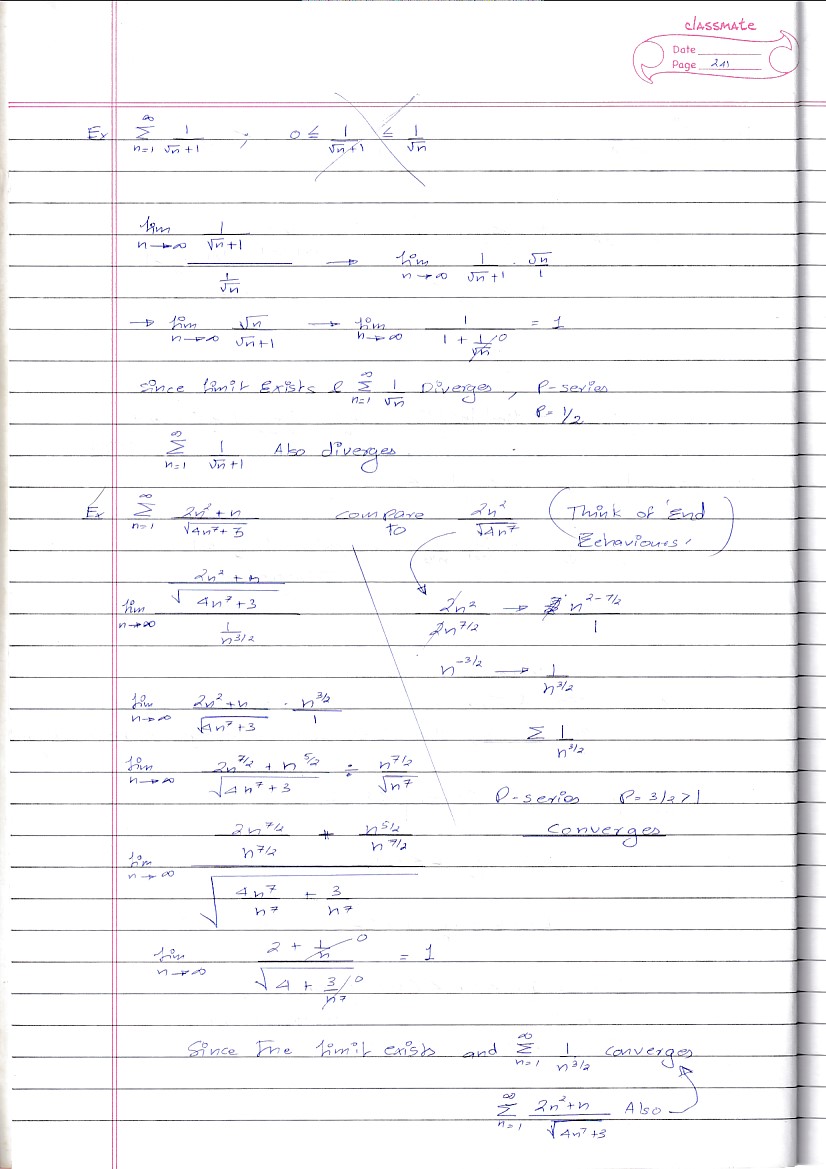 classmate
Date
Page 241
Ex ∞ Σ n=1 1/(√n + 1) ; 0 ≤ 1/(√n+1) ≤ 1/√n
lim n→∞ (1/(√n+1))/(1/√n) → lim n→∞ 1/(√n+1) · √n/1
→ lim n→∞ √n/(√n+1) → lim n→∞ 1/(1 + 1/√n) 0 = 1
Since limit Exists & ∞ Σ n=1 1/√n Diverges, P-series
P = 1/2
∞ Σ n=1 1/(√n+1) Also diverges
Ex ∞ Σ n=1 (2n² + n)/√(4n⁷ + 3) compare to 2n²/√(4n⁷) (Think of 'End
Behaviours')
lim n→∞ ((2n² + n)/√(4n⁷ + 3))/(1/n^(3/2))
2n²/2n^(7/2) → n^(2-7/2)/1
n^(-3/2) → 1/n^(3/2)
lim n→∞ (2n² + n)/√(4n⁷ + 3) · n^(3/2)/1
Σ 1/n^(3/2)
lim n→∞ (2n^(7/2) + n^(5/2))/√(4n⁷ + 3) ÷ n^(7/2)/√n⁷
P-series P = 3/2 > 1
converges
lim n→∞ (2n^(7/2)/n^(7/2) + n^(5/2)/n^(7/2))/√(4n⁷/n⁷ + 3/n⁷)
lim n→∞ (2 + 1/n 0)/√(4 + 3/n⁷ 0) = 1
Since The limit exists and ∞ Σ n=1 1/n^(3/2) converges
∞ Σ n=1 (2n²+n)/√(4n⁷+3) Also